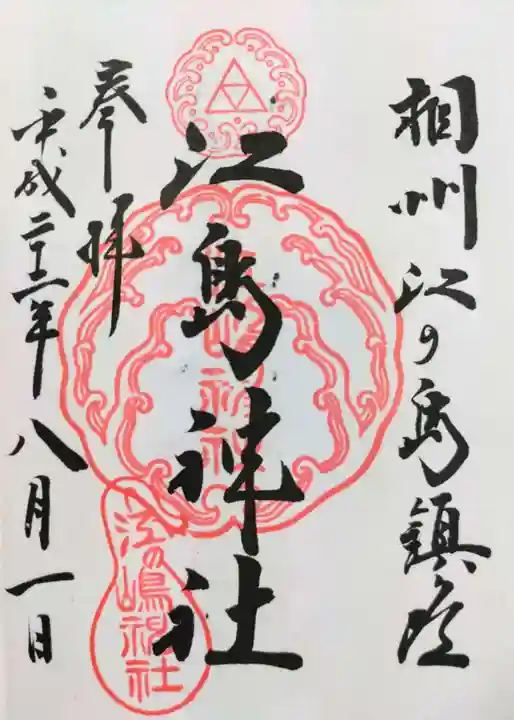 相州江の島鎮座
江島神社
奉拝
平成二十二年八月一日
江の嶋神社